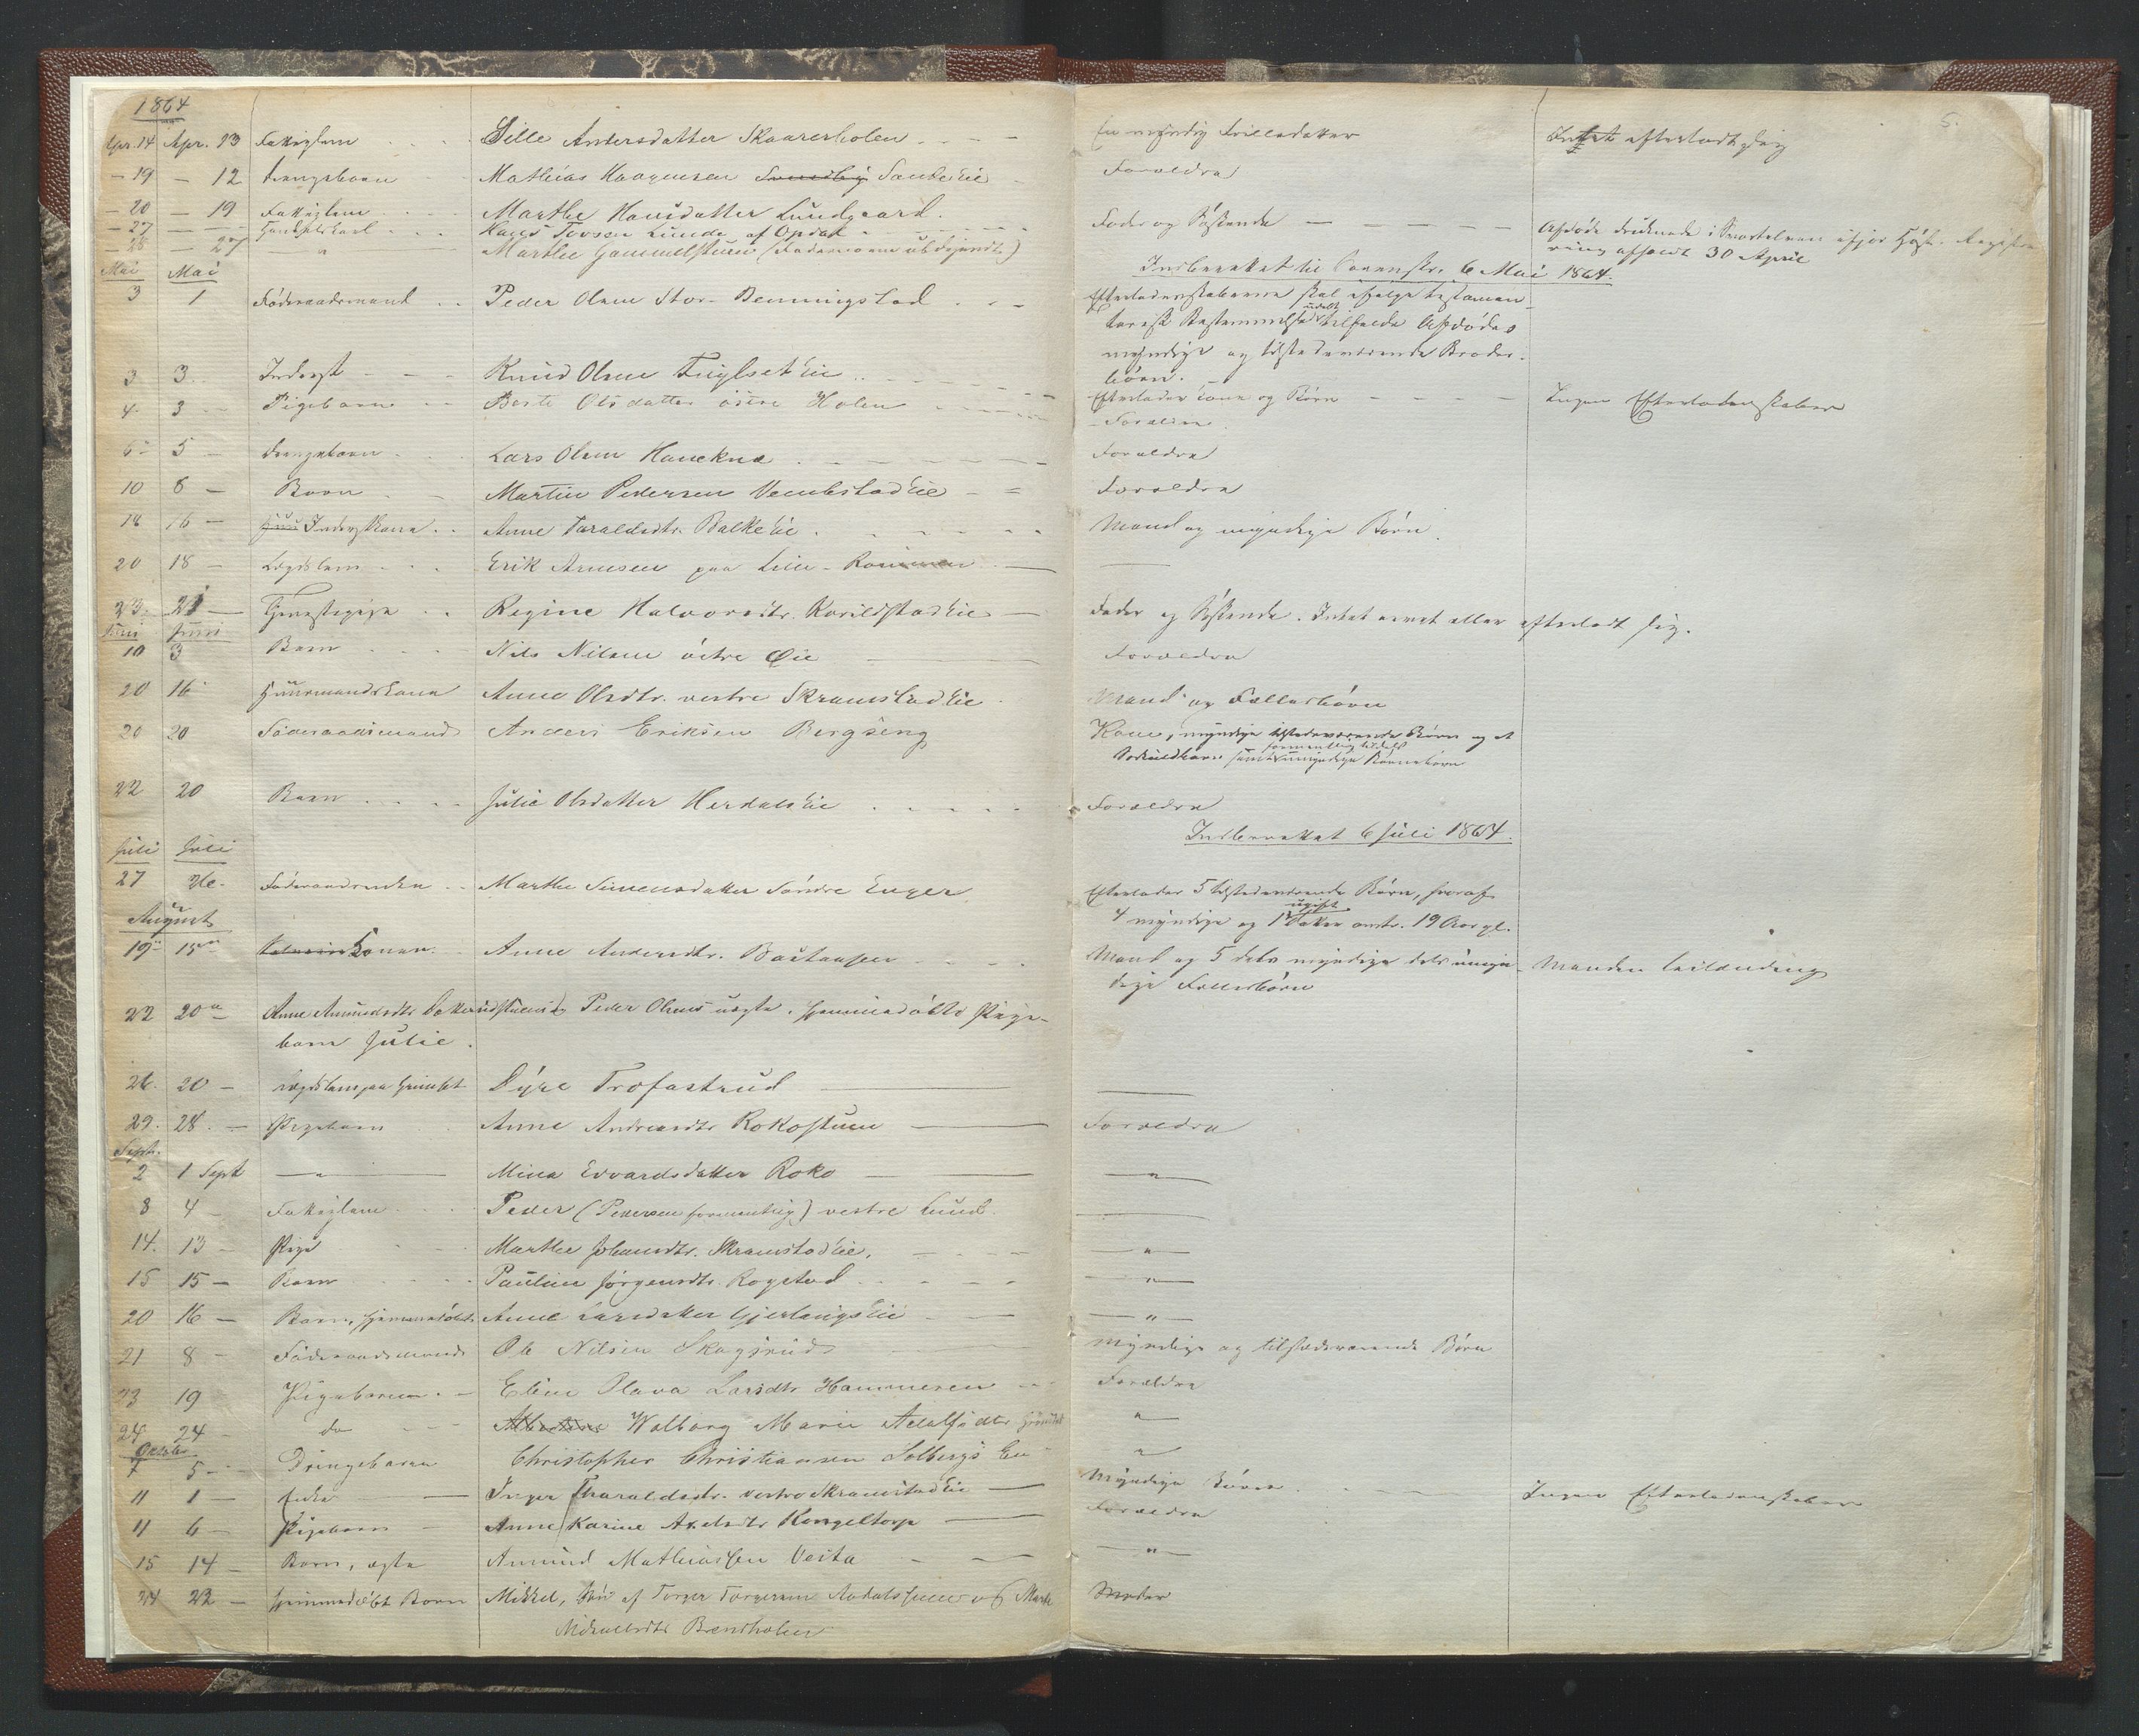 1864
Apr. 14 Apr. 13 Fattiglem Sille Andersdatter Skaarerholen En myndig Silledatter Intet efterladt sig
19 12 Drengebarn Mathias Haagensen Sandeeie Forældre
20 19 Fattiglem Marthe Hansdatter Lundgaard. Fader og Søskende
27 Hans Toosen Lunde af Opdal Afdøde
28 27 " Marthe Gammelstuen (Fadernavn ubekjendt) afholdt 30 April
Indberettet til Sorenskr. 6 Mai 1864.
Mai Mai
3 1 Føderaadsmand Peder Olsen Stor-Benningstad Efterladenskaberne skal ifølge testamen-
tarisk Bestemmelse udelt tilfalde Afdødes
myndige og tilstedeværende Broder-
børn.
3 3 Inderst Knud Olsen Fuglseteie Efterlader Kone og Børn Ingen Efterladenskaber
4 3 Pigebarn Berte Olsdatter østre Holen Forældre
6 5 Drengebarn Lars Olsen Hanekne Forældre
10 8 Barn Martin Pedersen Vembstadeie Forældre
18 16 Inderstkone Anne Taraldsdtr. Balkeeie Mand og myndige Børn.
20 18 Lægdslem Erik Arnesen paa Lille-Rømmen
23 21 Tjenestepige Regine Halvorsdtr. Korildstadeie Fader og Søskende. Intet arvet eller efterladt sig.
Juni Juni
10 3 Barn Nils Nilsen østre Øie Forældre
20 16 Huusmandskone Anne Olsdtr. vestre Skramstadeie Mand og Fællesbørn
20 20 Føderaadsmand Anders Eriksen Bergseng Kone, myndige tilstedeværende Børn og et
formentlig tildels
samt umyndige Børnebørn
22 20 Barn Julie Olsdatter Herdalseie Forældre
Indberettet 6 Juli 1864.
Juli Juli
27 26. Føderaadsenke Marthe Simensdatter Søndre Enger Efterlader 5 tilstedeværende Børn, hvoraf
ugift
4 myndige og 1 Datter omtr. 19 Aar gl.
August
19 15 Konen Anne Andersdtr. Bastaasen Mand og 5 dels myndige dels umyn- Manden Leilænding
dige Fællesbørn
22 20 Anne Amundsdtr. Bakkerudstuen og Peder Olsens uægte, hjemmedøbte Pige-
barn Julie.
26. 20 Lægdslem paa Grimset Dyre Trofastrud
29. 28. Pigebarn Anne Andreasdtr Rokostuen Forældre
Septr.
2 1 Sept " Mina Edvardsdatter Roko "
8 4 Fattiglem Peder (Pedersen formentlig) vestre Lund.
14. 13 Pige Marthe Johansdtr. Skramstadeie. "
15 15 Barn Pauline Jørgensdtr. Rogstad "
20 16 Barn, hjemmedøbt Anne Larsdatter Gjerlaugseie "
21 8 Føderaadsmand Ole Nilsen Skagsrud Myndige og tilstedeværende Børn
23 19 Pigebarn Eline Olava Larsdtr Hammeren Forældre
24 24 do Walborg Marie Adolfsdtr "
Oktober
7 5 Drengebarn Christopher Christiansen Solbergs Eie "
11 1 Enke Inger Tharaldsdtr. vestre Skramstadeie Myndige Børn Ingen Efterladenskaber
11 6 Pigebarn Anne Karine Axelsdtr Kongeltorp Forældre
15 14 Barn, ægte Amund Mathiassen Vesta "
24 22 Hjemmedøbt Barn Mikkel, Søn af Torger Torgersen Aadalsstuen og Marthe Moder
Mikkelsdtr Brendholen
5.